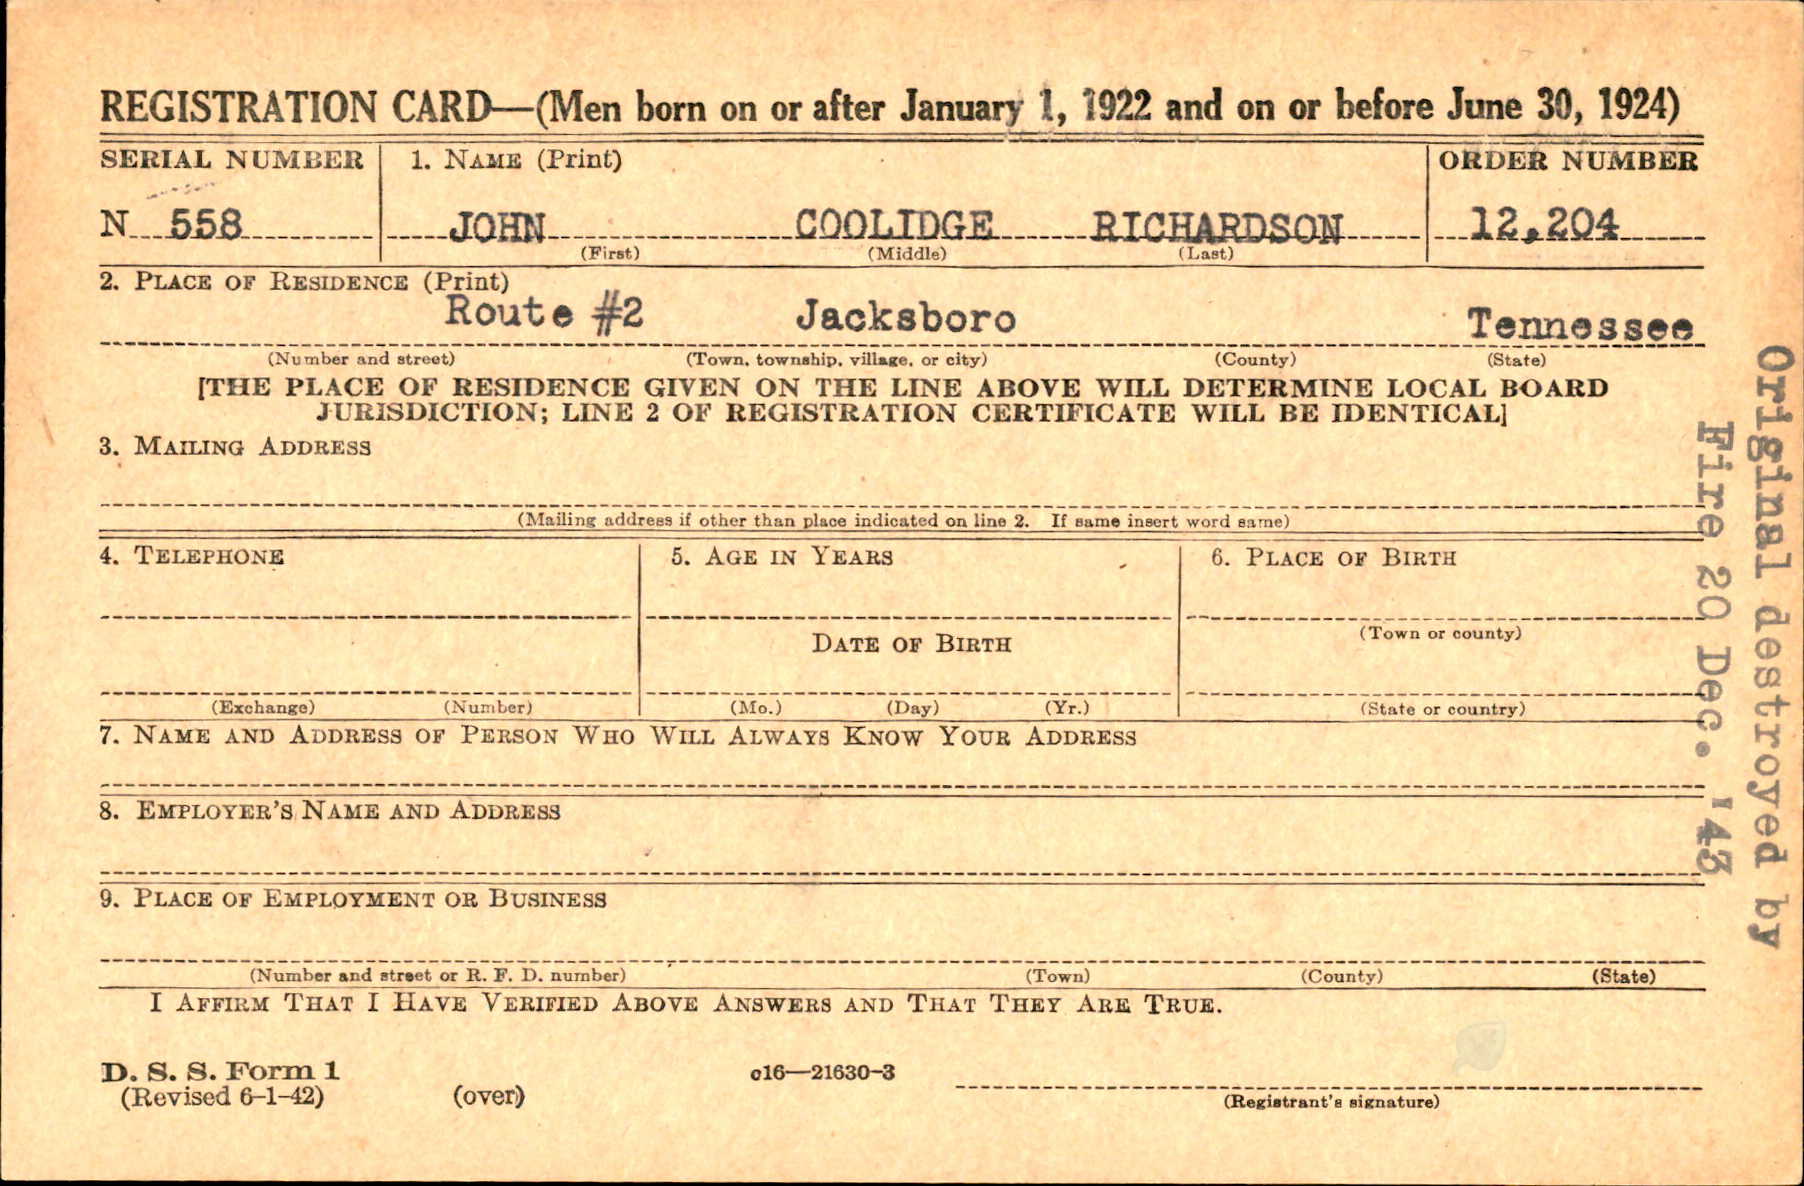 REGISTRATION CARD—(Men born on or after January 1, 1922 and on or before June 30, 1924)
SERIAL NUMBER 1. NAME (Print) ORDER NUMBER
N 558 JOHN COOLIDGE RICHARDSON 12,204
(First) (Middle) (Last)
2. PLACE OF RESIDENCE (Print)
Route #2 Jacksboro Tennessee
(Number and street) (Town, township, village, or city) (County) (State)
[THE PLACE OF RESIDENCE GIVEN ON THE LINE ABOVE WILL DETERMINE LOCAL BOARD
JURISDICTION; LINE 2 OF REGISTRATION CERTIFICATE WILL BE IDENTICAL]
3. MAILING ADDRESS
(Mailing address if other than place indicated on line 2. If same insert word same)
4. TELEPHONE 5. AGE IN YEARS 6. PLACE OF BIRTH
(Town or county)
DATE OF BIRTH
(Exchange) (Number) (Mo.) (Day) (Yr.) (State or country)
7. NAME AND ADDRESS OF PERSON WHO WILL ALWAYS KNOW YOUR ADDRESS
8. EMPLOYER'S NAME AND ADDRESS
9. PLACE OF EMPLOYMENT OR BUSINESS
(Number and street or R. F. D. number) (Town) (County) (State)
I AFFIRM THAT I HAVE VERIFIED ABOVE ANSWERS AND THAT THEY ARE TRUE.
D. S. S. Form 1 c16—21630-3
(Revised 6-1-42) (over) (Registrant's signature)
Original destroyed by
Fire 20 Dec. '43